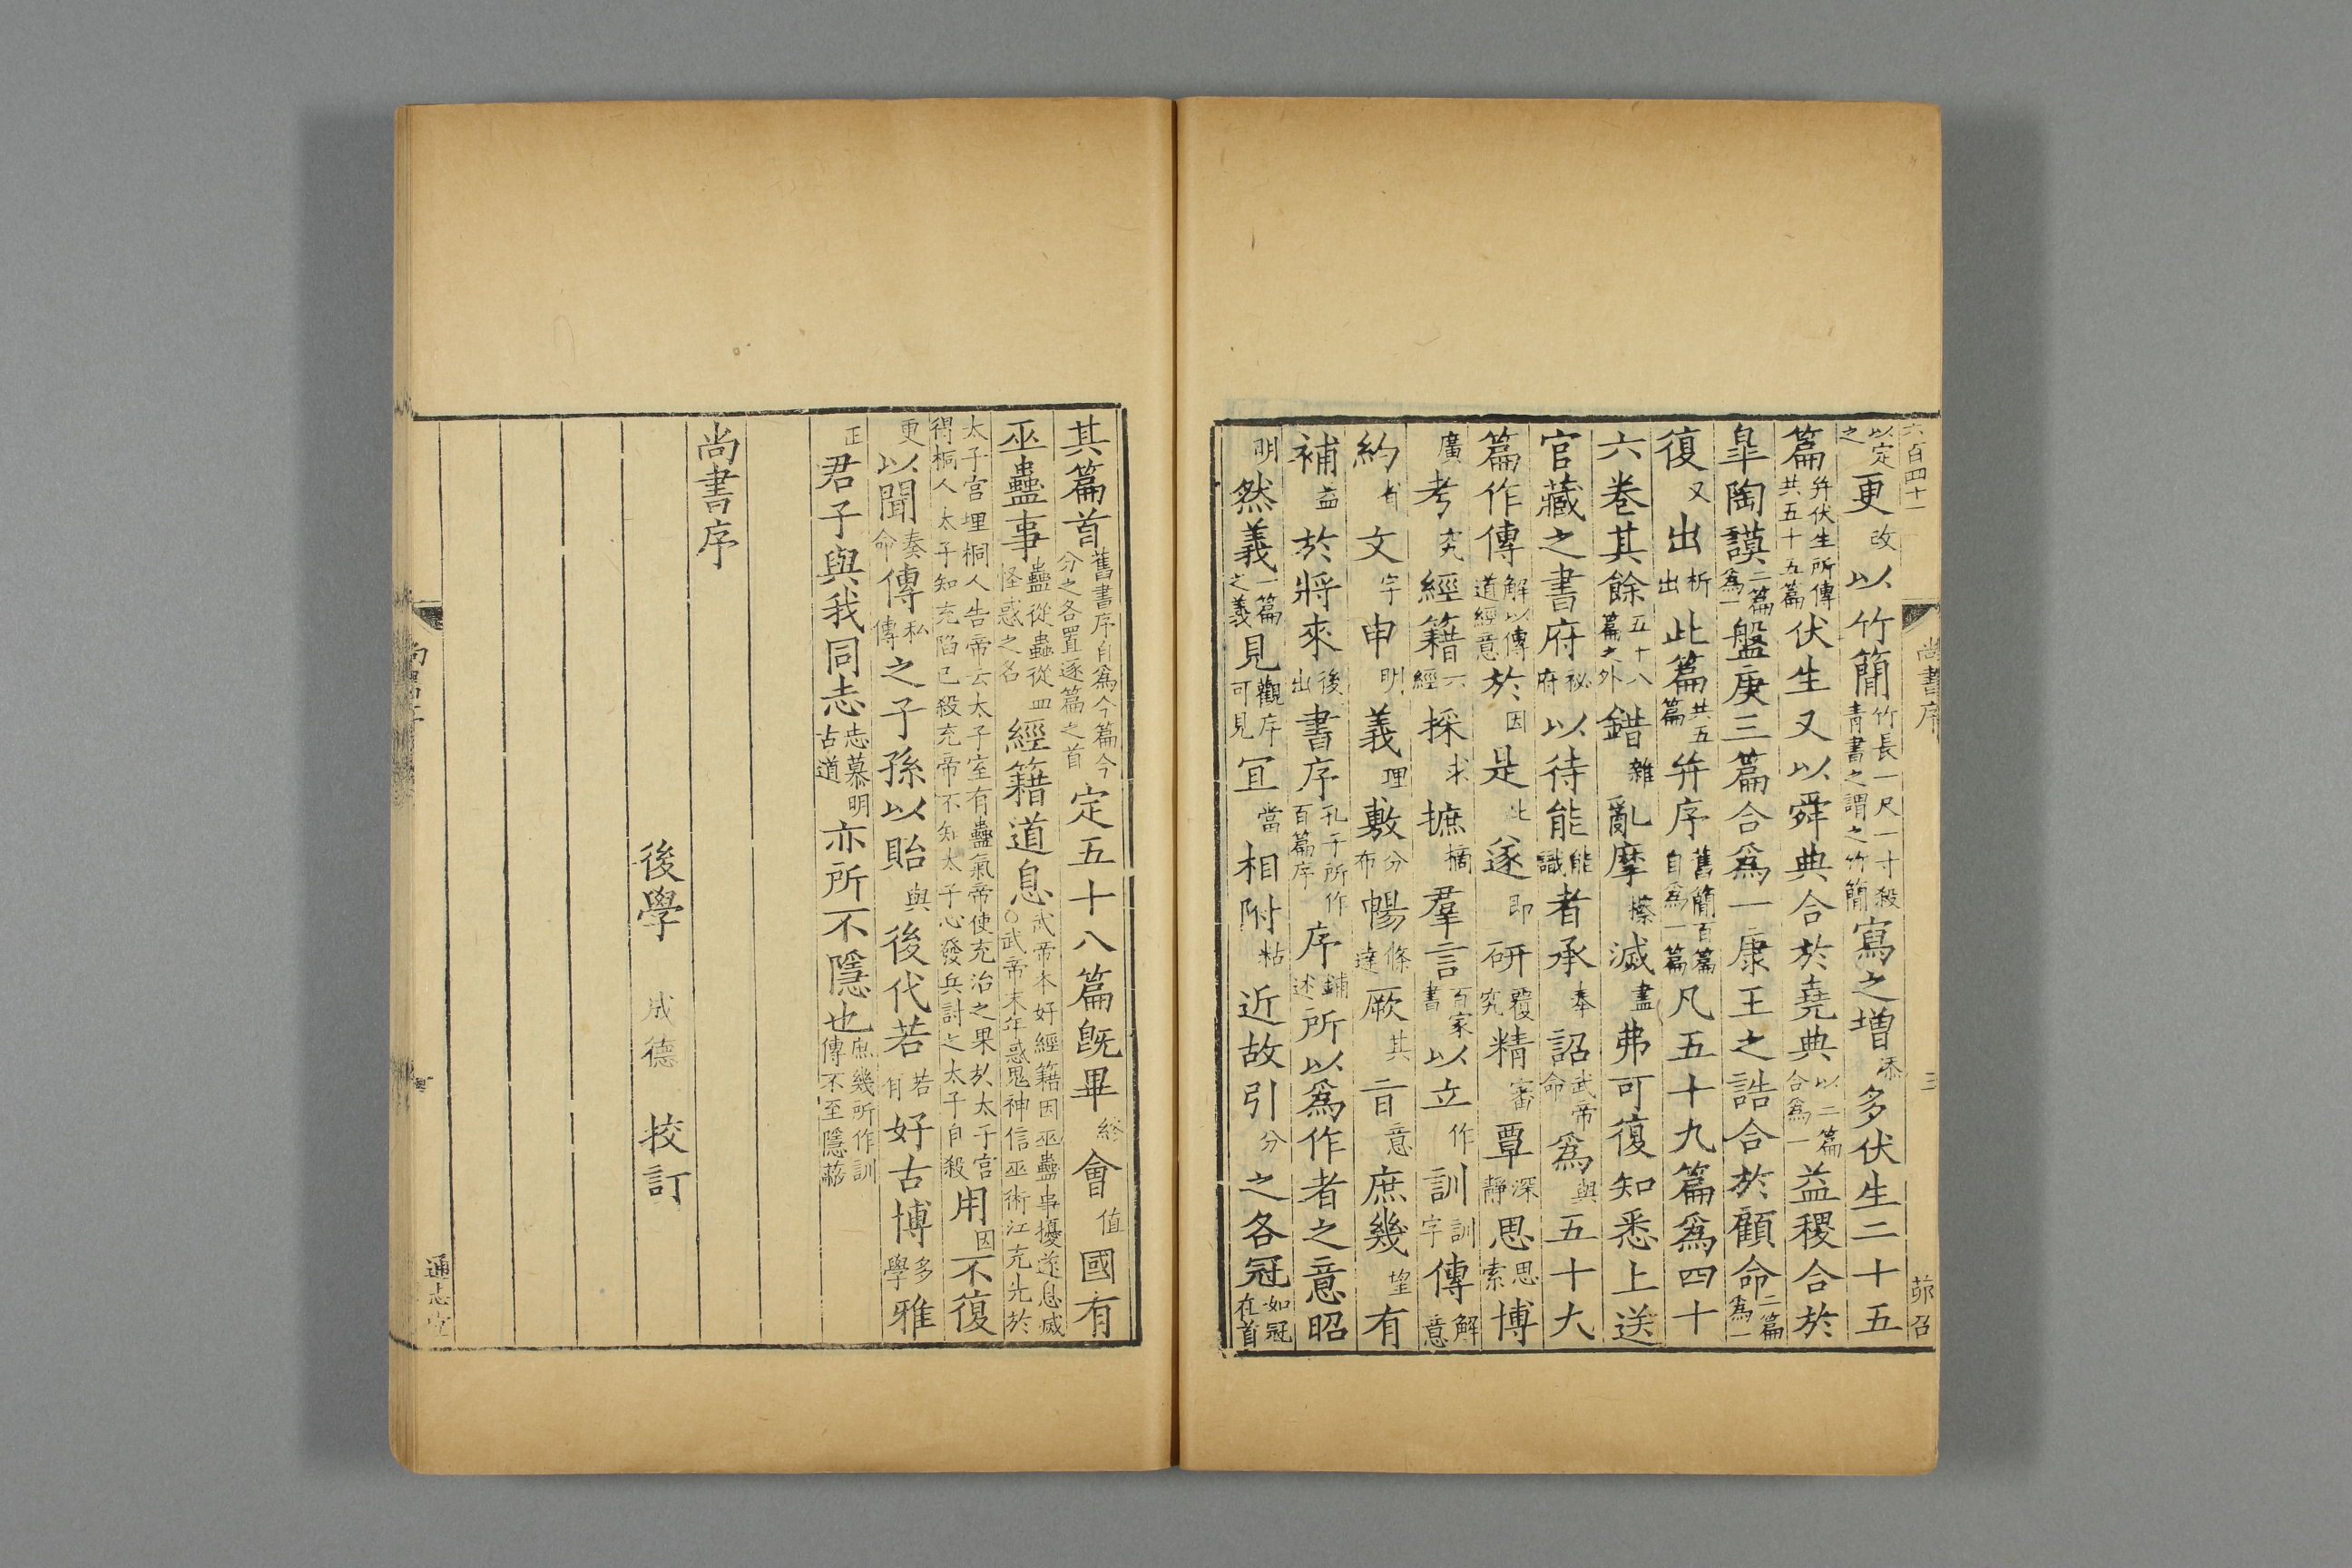 六百四十一
尚書序
三
茆召
以定之更改以竹簡竹長一尺一寸殺青書之謂之竹簡寫之增添多伏生二十五
篇并伏生所傳共五十九篇伏生又以舜典合於堯典以二篇合爲一益稷合於
皐陶謨二篇爲一盤庚三篇合爲一康王之誥合於顧命二篇爲一
復又出析出此篇共五篇并序舊簡百篇自爲一篇凡五十九篇爲四十
六卷其餘五十八篇之外錯雜亂摩擦滅盡弗可復知悉上送
官藏之書府祕府以待能能識者承奉詔武帝命爲與五十大
篇作傳解以傳道經意於因是此遂即研覆究精審覃深靜思思索博
廣考究經籍六經採求摭摘羣言百家書以立作訓訓字傳解意
約省文字申明義理敷分布暢條達厥其旨意庶幾望有
補益於將來後出書序孔子所作百篇序序鋪述所以爲作者之意昭
明然義一篇之義見觀序可見宜當相附粘近故引分之各冠如冠在首
其篇首舊書序自爲今篇今分之各置逐篇之首定五十八篇旣畢終會值國有
巫蠱事蠱從蟲從皿怪惑之名經籍道息武帝本好經籍因巫蠱事擾遂息滅○武帝末年惑鬼神信巫術江充先於
太子宮埋桐人告帝云太子室有蠱氣帝使充治之果於太子宮得桐人太子知充陷己殺充帝不知太子心發兵討之太子自殺用因不復
更以聞奏命傳私傳之子孫以貽與後代若若有好古博多學雅
正君子與我同志志慕明古道亦所不隱也庶幾所作訓傳不至隱蔽
尚書序
後學 成德 校訂
通志堂